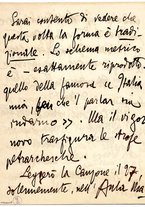 Sarai contento di vedere che
questa volta la forma è tradi-
zionale. Lo schema metrico
è esattamente riprodotto
quello della famosa « Italia
mia, ben che 'l parlar sia
indarno » Ma il vigor
novo trasfigura le strofe
petrarchesche.
Leggerò la Canzone il 27,
solennemente, nell' Aula Mag